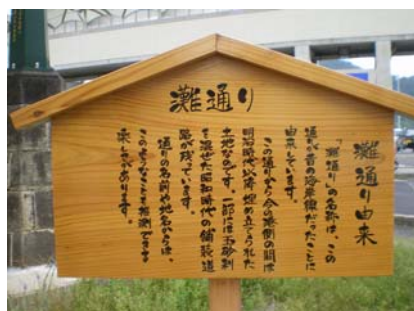 灘通り
灘通り由来
「灘通り」の名称は、この
通りが昔の海岸線だったことに
由来しています。
この通りから今の海側の間は
明治時代以降、埋め立てられた
土地なのです。一部には玉砂利
を混ぜた昭和時代の舗装道
路が残っています。
通りの名前や地名からは、
このようなことも推測できる
楽しさがあります。